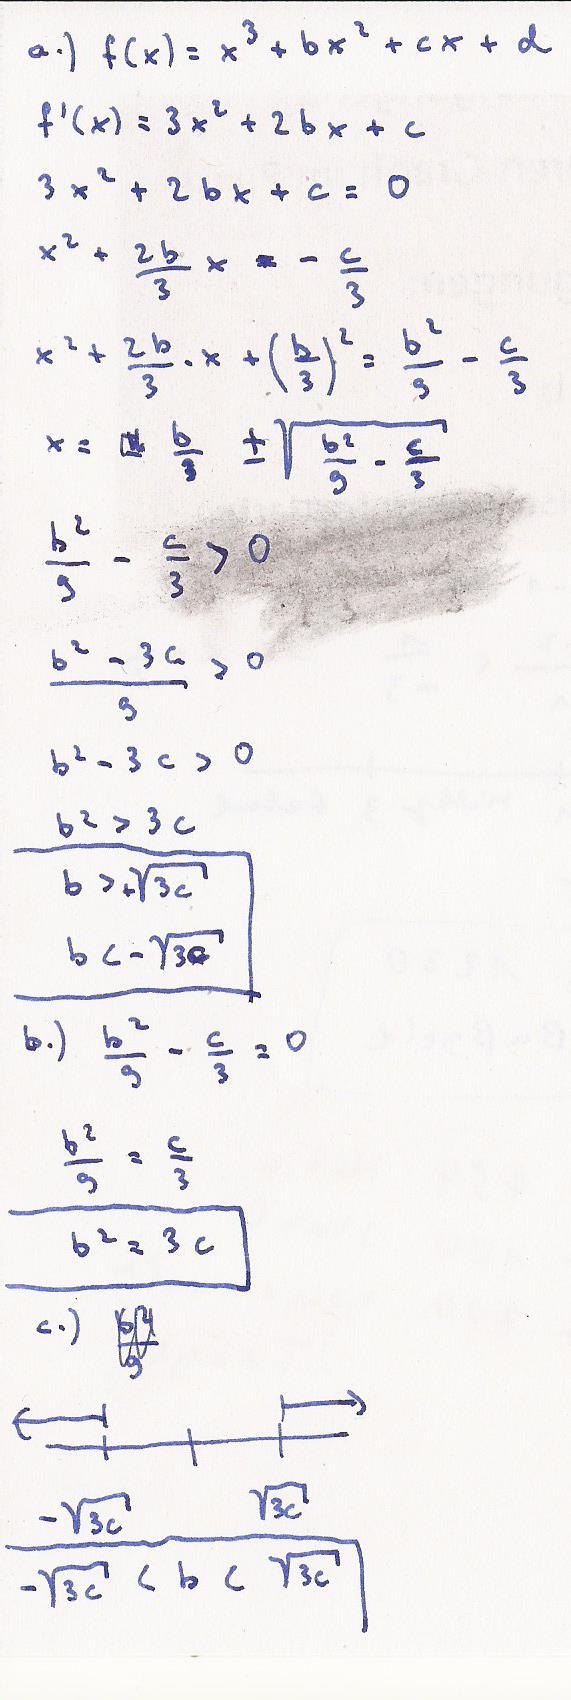 a.) f(x) = x³ + bx² + cx + d
f'(x) = 3x² + 2bx + c
3x² + 2bx + c = 0
x² + 2b/3 x = - c/3
x² + 2b/3 · x + (b/3)² = b²/9 - c/3
x = - b/3 ± √(b²/9 - c/3)
b²/9 - c/3 > 0
(b² - 3c)/9 > 0
b² - 3c > 0
b² > 3c
b > +√3c
b < -√3c
b.) b²/9 - c/3 = 0
b²/9 = c/3
b² = 3c
c.)
-√3c √3c
-√3c < b < √3c